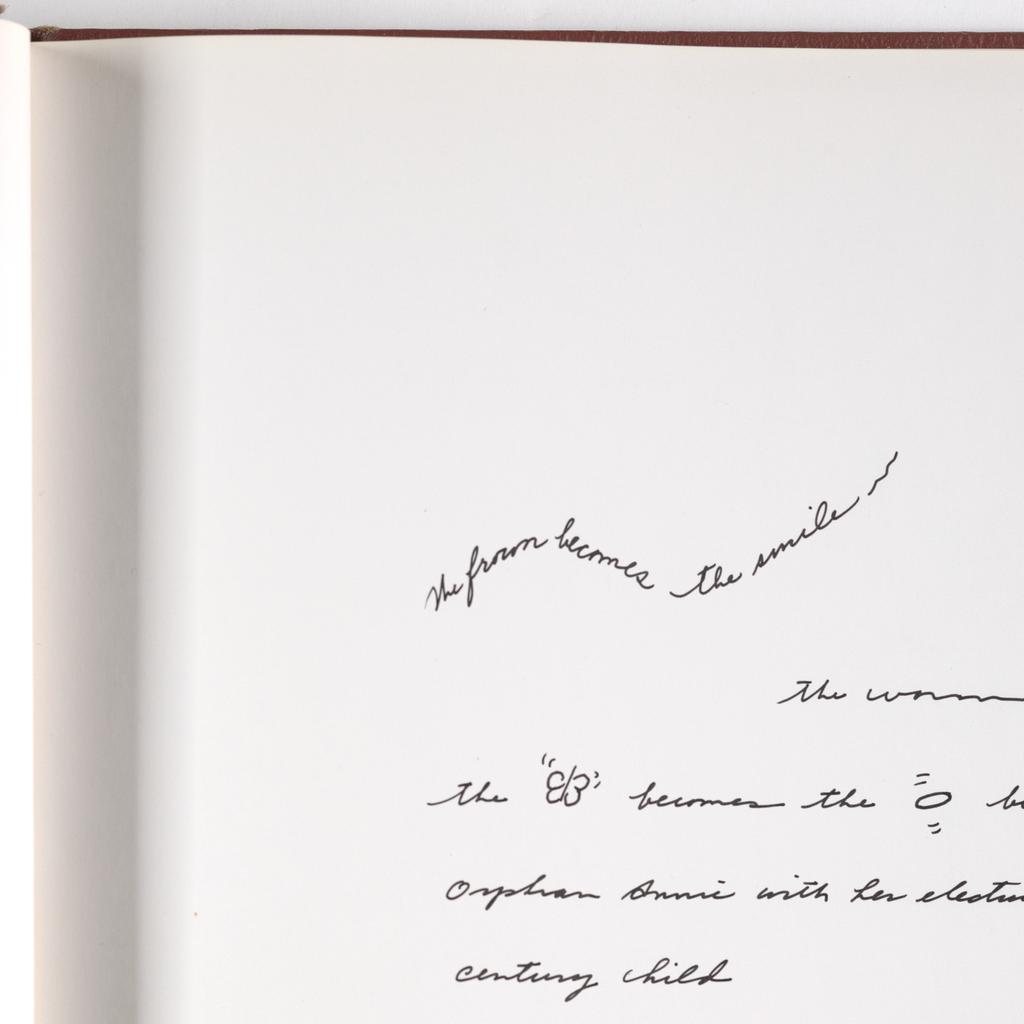 the frown becomes the smile
the worm
the becomes the
Orphan Annie with her
century child